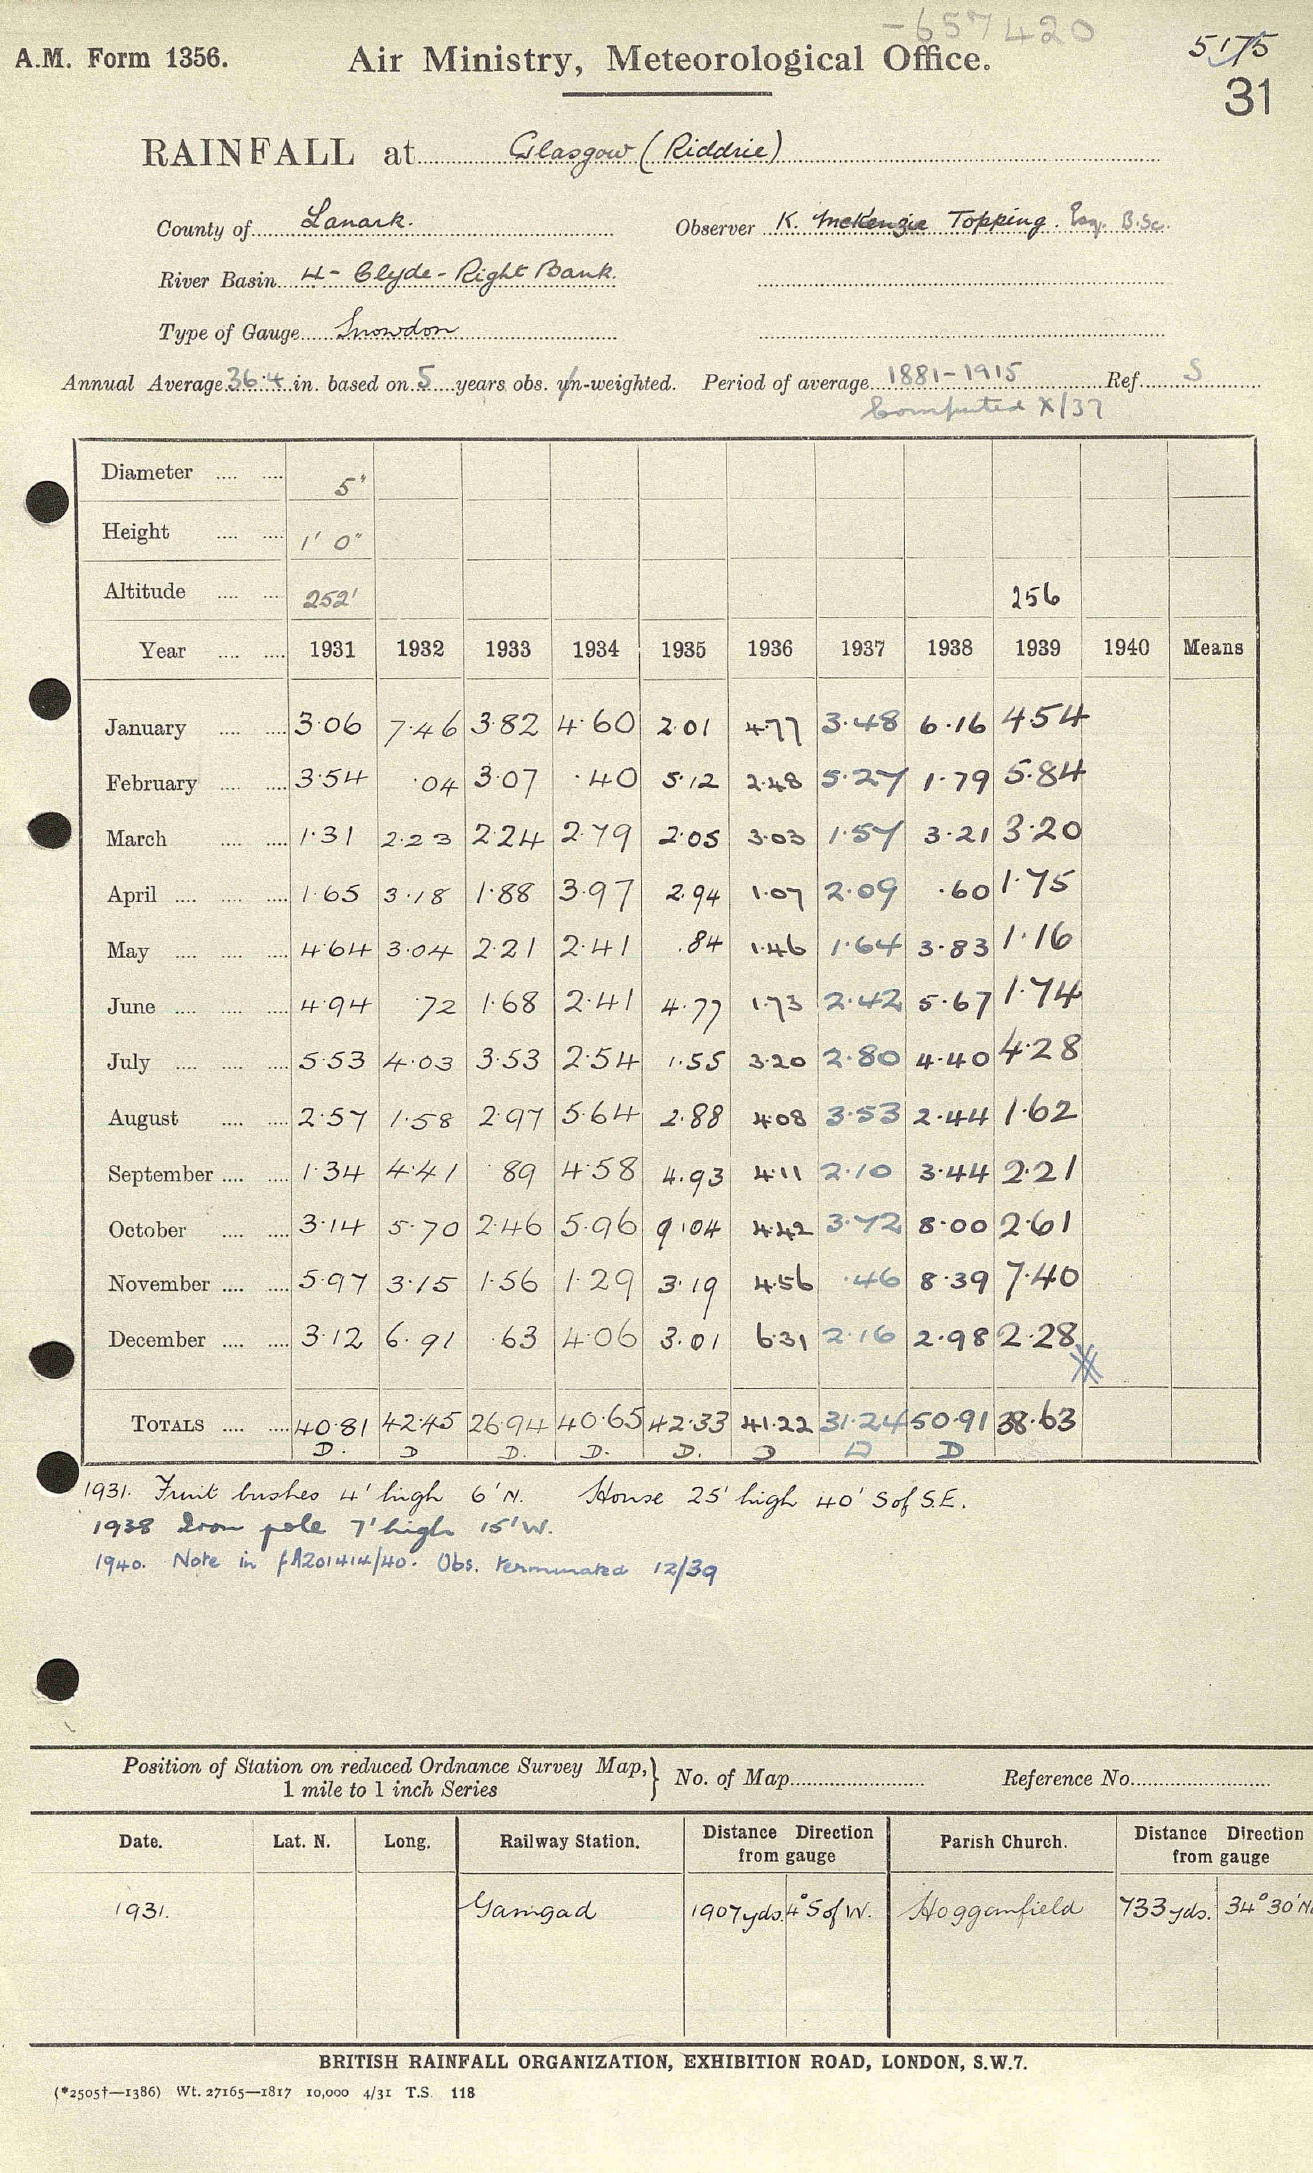 -657420
A.M. Form 1356. Air Ministry, Meteorological Office. 5175
31
RAINFALL at Glasgow (Riddrie)
County of Lanark. Observer K. McKenzie Topping. Esq. B.Sc.
River Basin 4- Clyde - Right Bank.
Type of Gauge Snowdon
Annual Average 36.4 in. based on 5 years obs. un-weighted. Period of average 1881-1915 Ref. S
Computed X/37
Diameter .... .... 5"
Height .... .... 1' 0"
Altitude .... .... 252' 256
Year .... .... 1931 1932 1933 1934 1935 1936 1937 1938 1939 1940 Means
January .... .... 3.06 7.46 3.82 4.60 2.01 4.77 3.48 6.16 4.54
February .... .... 3.54 .04 3.07 .40 5.12 2.48 5.27 1.79 5.84
March .... .... 1.31 2.23 2.24 2.79 2.05 3.03 1.57 3.21 3.20
April .... .... .... 1.65 3.18 1.88 3.97 2.94 1.07 2.09 .60 1.75
May .... .... .... 4.64 3.04 2.21 2.41 .84 1.46 1.64 3.83 1.16
June .... .... .... 4.94 .72 1.68 2.41 4.77 1.73 2.42 5.67 1.74
July .... .... .... 5.53 4.03 3.53 2.54 1.55 3.20 2.80 4.40 4.28
August .... .... 2.57 1.58 2.97 5.64 2.88 4.08 3.53 2.44 1.62
September .... .... 1.34 4.41 .89 4.58 4.93 4.11 2.10 3.44 2.21
October .... .... 3.14 5.70 2.46 5.96 9.04 4.42 3.72 8.00 2.61
November .... .... 5.97 3.15 1.56 1.29 3.19 4.56 .46 8.39 7.40
December .... .... 3.12 6.91 .63 4.06 3.01 6.31 2.16 2.98 2.28
TOTALS .... .... 40.81 42.45 26.94 40.65 42.33 41.22 31.24 50.91 38.63
D. D D. D. D. D D D
1931. Fruit bushes 4' high 6' N. House 25' high 40' S of S.E.
1938 Iron pole 7' high 15' W.
1940. Note in fA201414/40. Obs. terminated 12/39
Position of Station on reduced Ordnance Survey Map,} No. of Map Reference No.
1 mile to 1 inch Series
Date. Lat. N. Long. Railway Station. Distance Direction from gauge Parish Church. Distance Direction from gauge
1931. Garngad 1907 yds. 4° S of W. Hogganfield 733 yds. 34° 30' N
BRITISH RAINFALL ORGANIZATION, EXHIBITION ROAD, LONDON, S.W.7.
(*2505†—1386) Wt. 27165—1817 10,000 4/31 T.S. 118